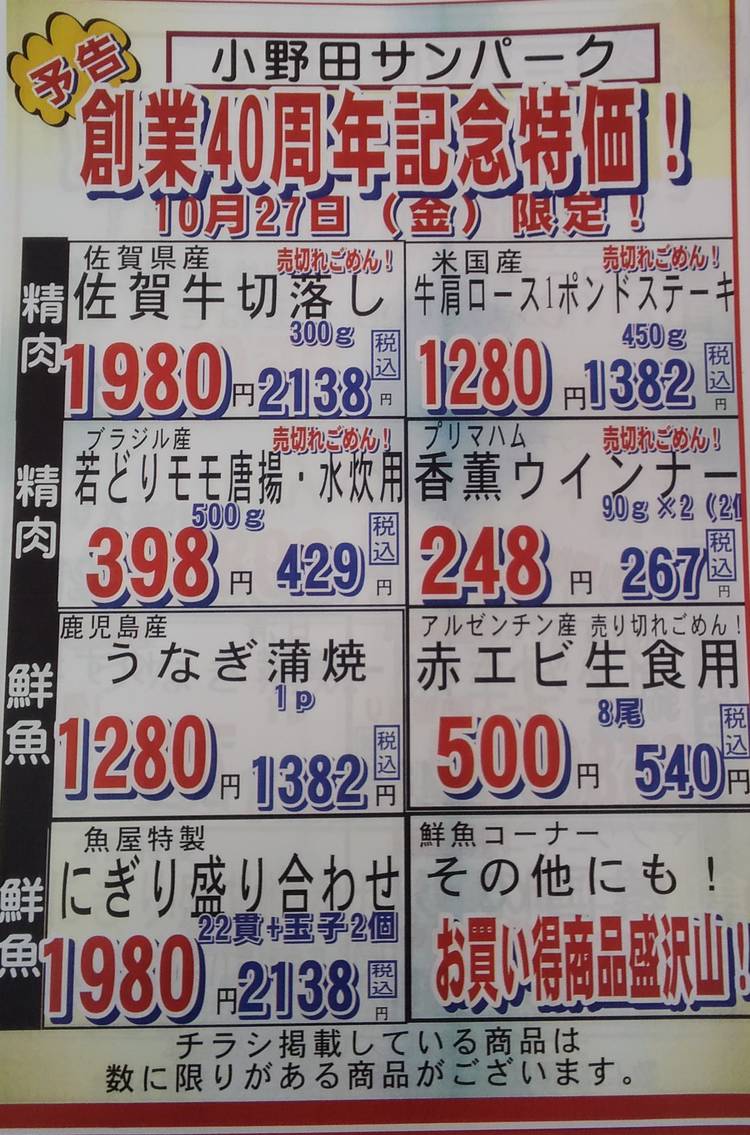 予告
小野田サンパーク
創業40周年記念特価！
10月27日（金）限定！
精肉
佐賀県産 売切れごめん！
佐賀牛切落し
300g
1980円 2138円 税込
米国産 売切れごめん！
牛肩ロース1ポンドステーキ
450g
1280円 1382円 税込
精肉
ブラジル産 売切れごめん！
若どりモモ唐揚・水炊用
500g
398円 429円 税込
プリマハム 売切れごめん！
香薫ウインナー
90g×2（2
248円 267円 税込
鮮魚
鹿児島産
うなぎ蒲焼
1p
1280円 1382円 税込
アルゼンチン産 売り切れごめん！
赤エビ生食用
8尾
500円 540円 税込
鮮魚
魚屋特製
にぎり盛り合わせ
22貫+玉子2個
1980円 2138円 税込
鮮魚コーナー
その他にも！
お買い得商品盛沢山！
チラシ掲載している商品は
数に限りがある商品がございます。